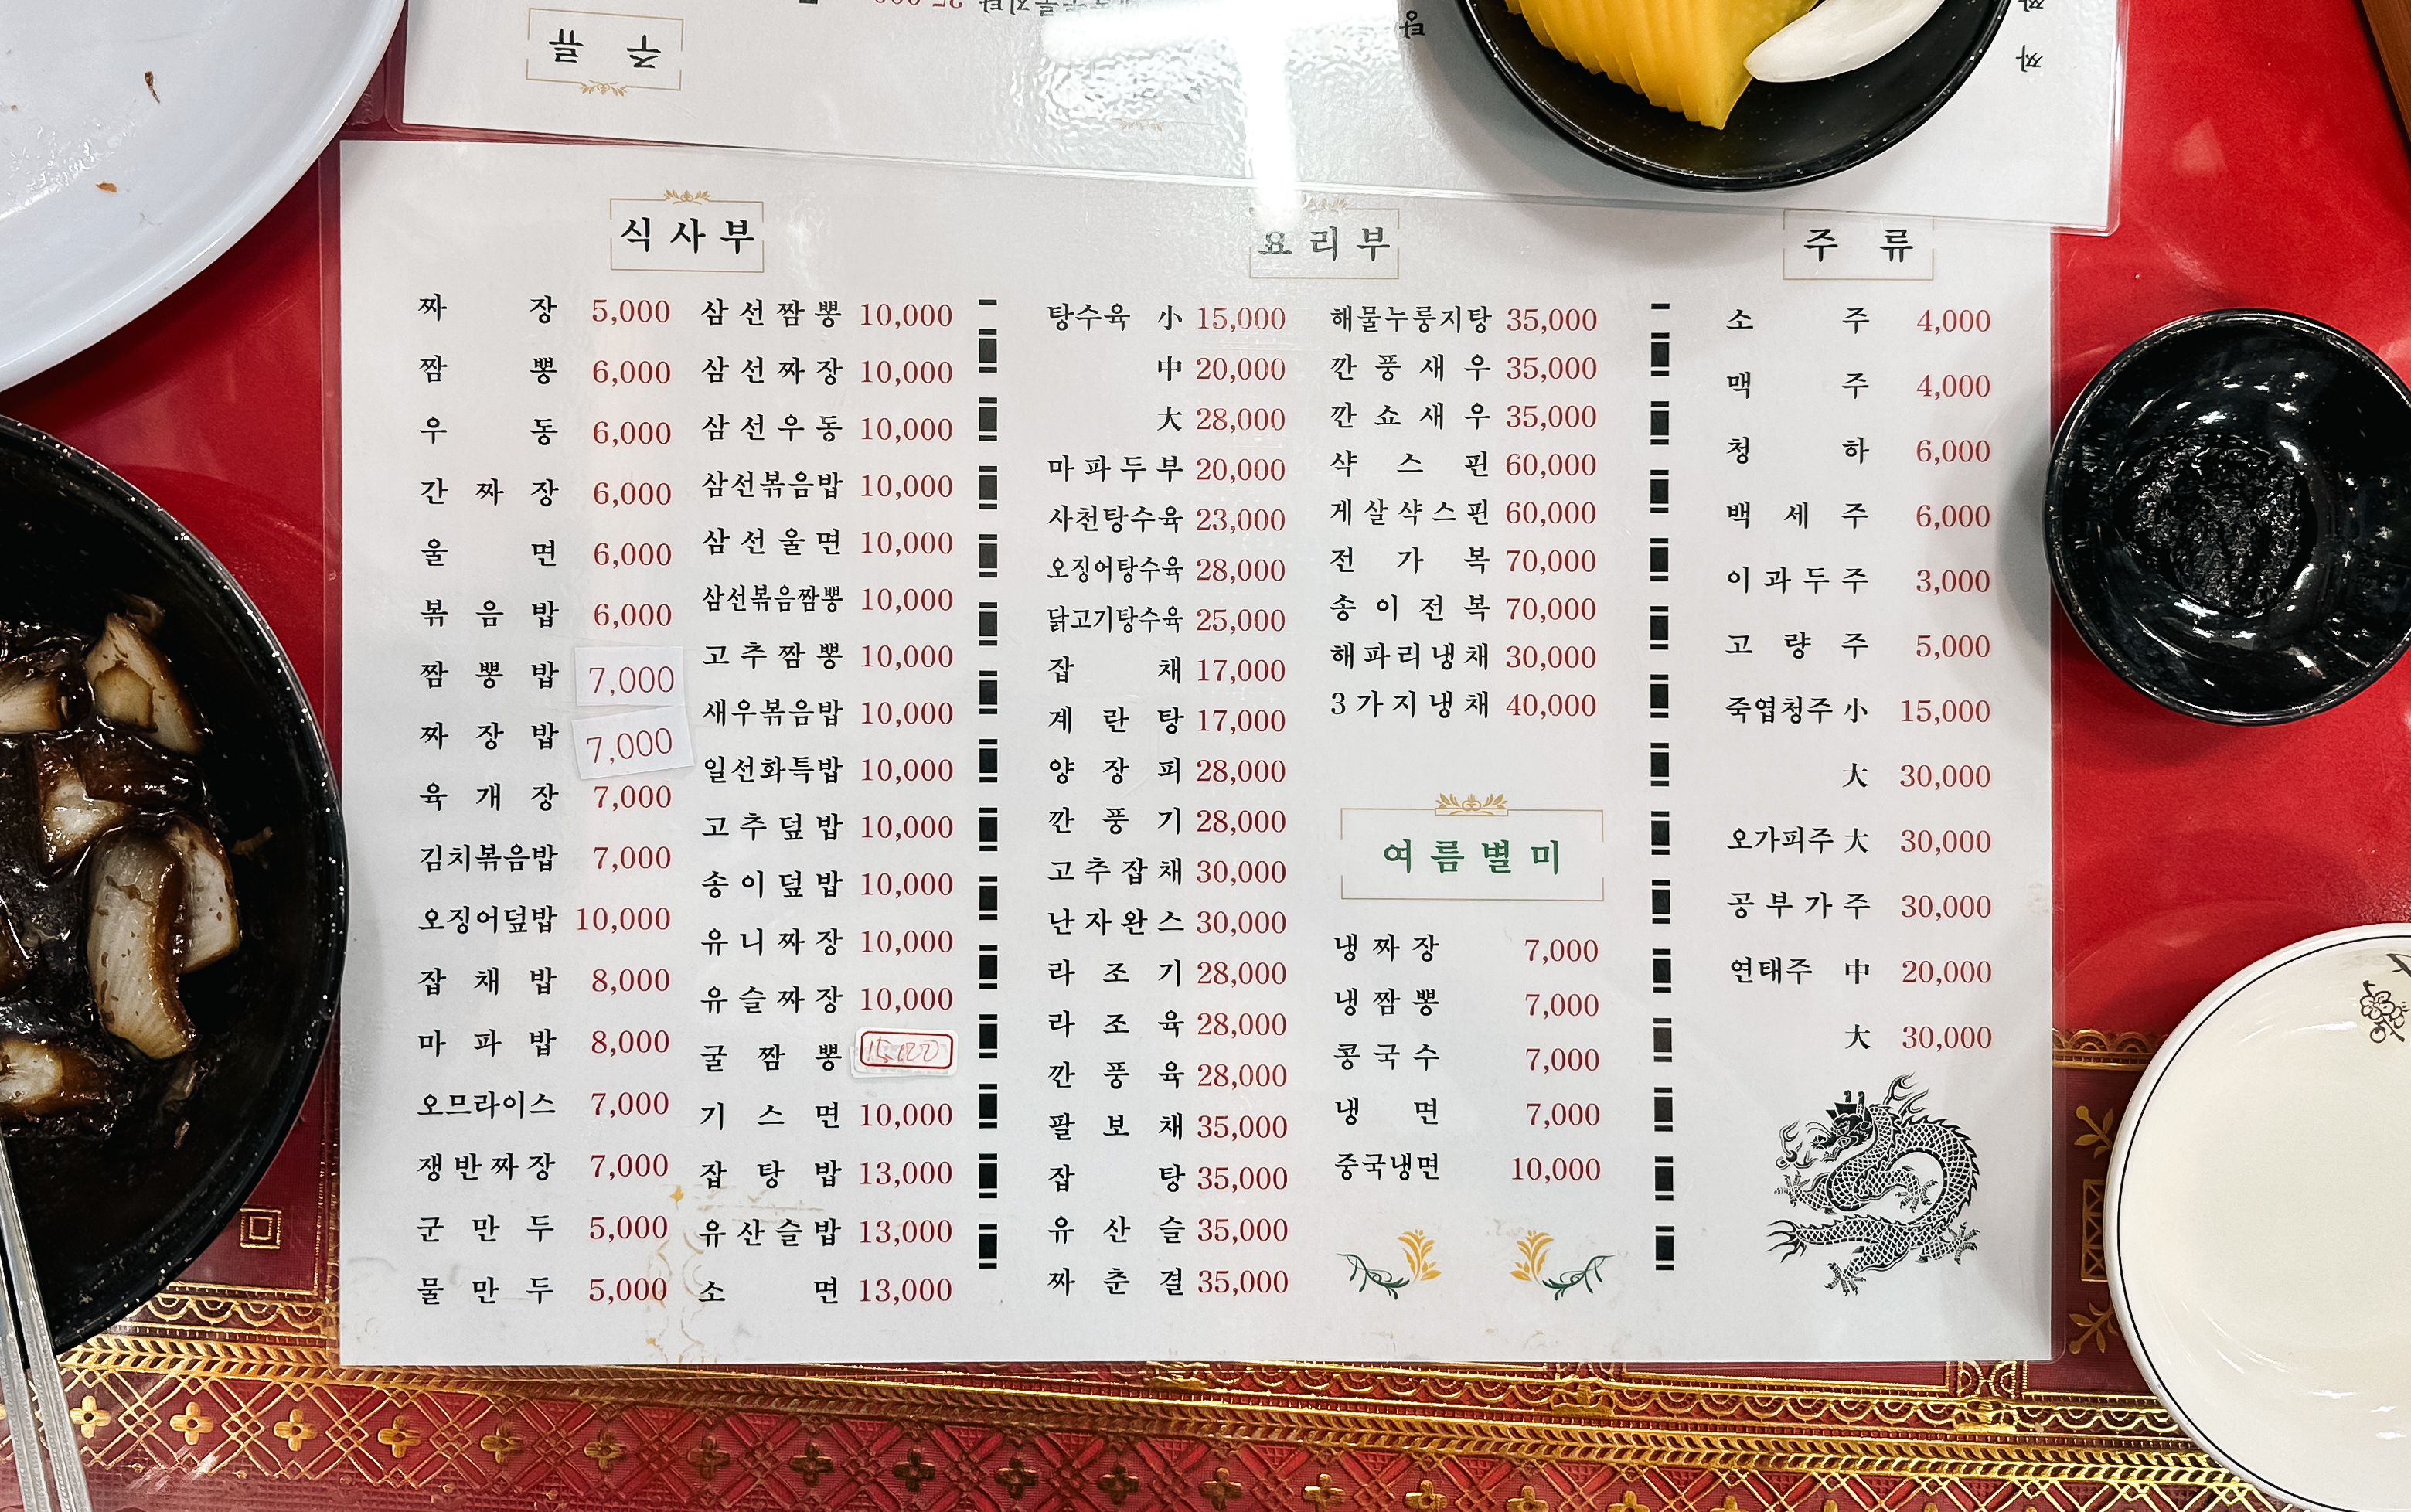 주 류
식사부
짜장 5,000
짬뽕 6,000
우동 6,000
간짜장 6,000
울면 6,000
볶음밥 6,000
짬뽕밥 7,000
짜장밥 7,000
육개장 7,000
김치볶음밥 7,000
오징어덮밥 10,000
잡채밥 8,000
마파밥 8,000
오므라이스 7,000
쟁반짜장 7,000
군만두 5,000
물만두 5,000
삼선짬뽕 10,000
삼선짜장 10,000
삼선우동 10,000
삼선볶음밥 10,000
삼선울면 10,000
삼선볶음짬뽕 10,000
고추짬뽕 10,000
새우볶음밥 10,000
일선화특밥 10,000
고추덮밥 10,000
송이덮밥 10,000
유니짜장 10,000
유슬짜장 10,000
굴짬뽕
기스면 10,000
잡탕밥 13,000
유산슬밥 13,000
소면 13,000
요리부
탕수육 小 15,000
中 20,000
大 28,000
마파두부 20,000
사천탕수육 23,000
오징어탕수육 28,000
닭고기탕수육 25,000
잡채 17,000
계란탕 17,000
양장피 28,000
깐풍기 28,000
고추잡채 30,000
난자완스 30,000
라조기 28,000
라조육 28,000
깐풍육 28,000
팔보채 35,000
잡탕 35,000
유산슬 35,000
짜춘결 35,000
해물누룽지탕 35,000
깐풍새우 35,000
깐쇼새우 35,000
샥스핀 60,000
게살샥스핀 60,000
전가복 70,000
송이전복 70,000
해파리냉채 30,000
3가지냉채 40,000
여름별미
냉짜장 7,000
냉짬뽕 7,000
콩국수 7,000
냉면 7,000
중국냉면 10,000
주 류
소주 4,000
맥주 4,000
청하 6,000
백세주 6,000
이과두주 3,000
고량주 5,000
죽엽청주 小 15,000
大 30,000
오가피주 大 30,000
공부가주 30,000
연태주 中 20,000
大 30,000